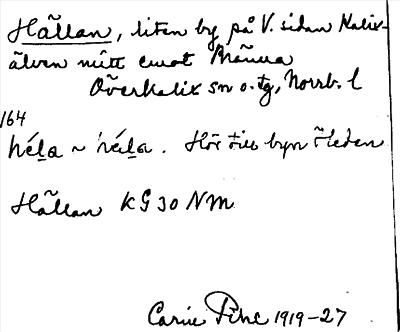 Hällan, liten by på V. sidan Kalix-
älven mitt emot Bränna
Överkalix sn o. tg, Norrb. l
164
Hör till byn
Hällan KG 30 NM
Carin Pihl 1919-27